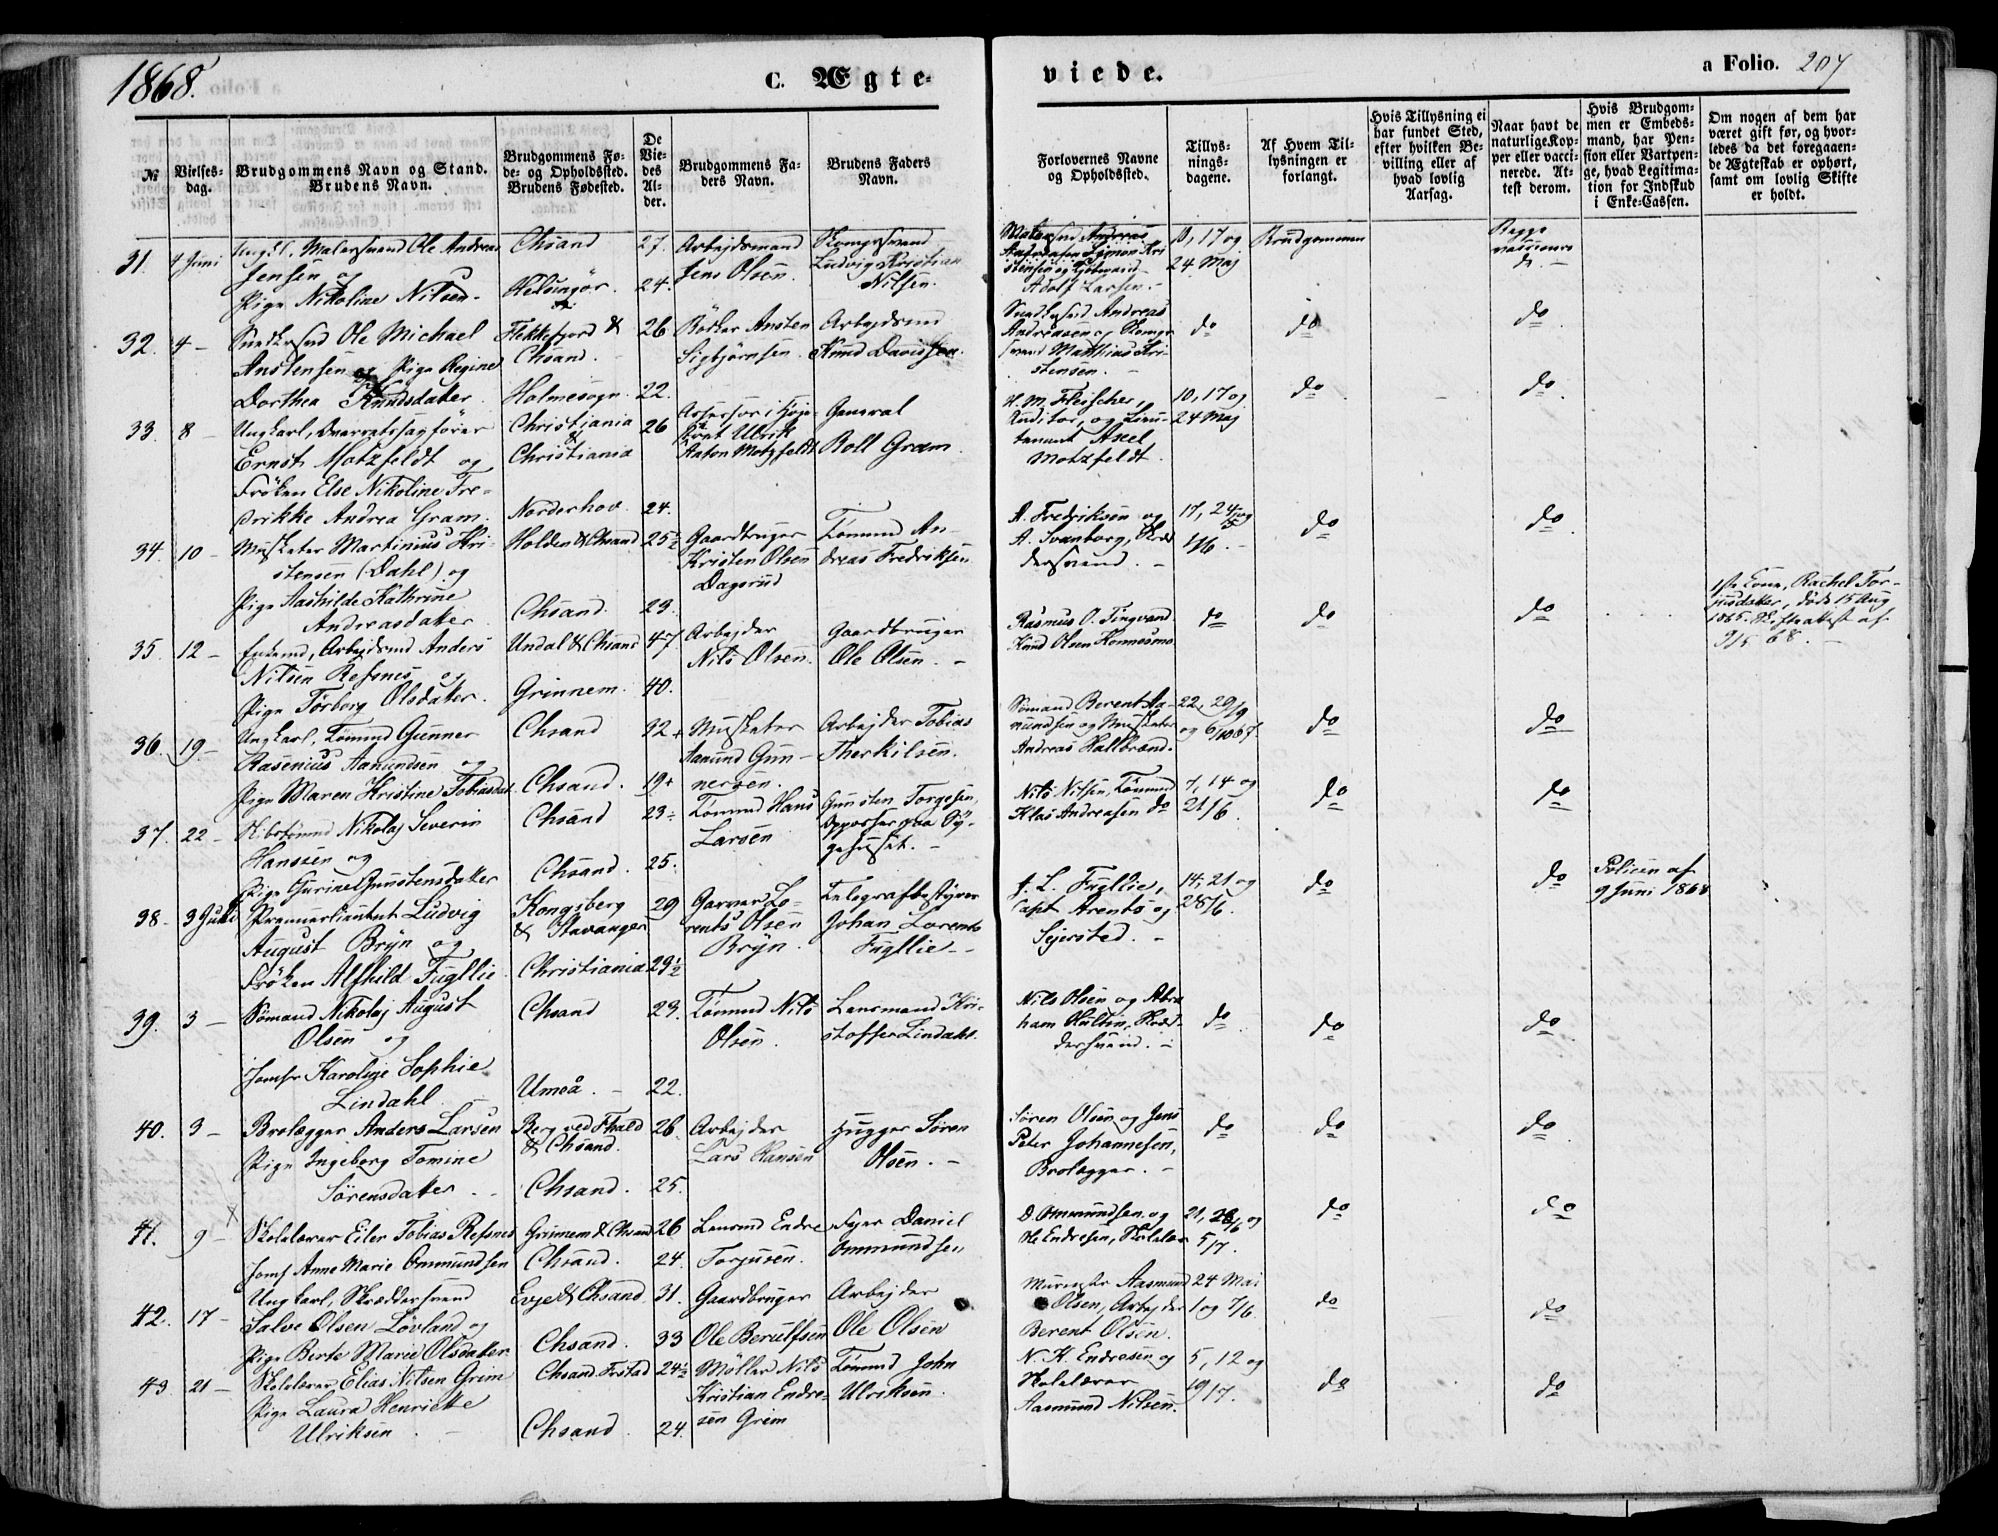 1868.
C. Ægte-
viede.
a Folio. 207
№
Vielses-
dag.
Brudgommens Navn og Stand.
Brudens Navn.
Brudgommens Fø-
de- og Opholdssted.
Brudens Fødested.
De
Vie-
des
Al-
der.
Brudgommens Fa-
ders Navn.
Brudens Faders
Navn.
Forlovernes Navne
og Opholdssted.
Tillys-
nings-
dagene.
Af Hvem Til-
lysningen er
forlangt.
Hvis Tillysning ei
har fundet Sted,
efter hvilken Be-
villing eller af
hvad lovlig
Aarsag.
Naar havt de
naturlige Kop-
per eller vacci-
nerede. At-
test derom.
Hvis Brudgom-
men er Embeds-
mand, har Pen-
sion eller Vartpen-
ge, hvad Legitima-
tion for Indskud
i Enke-Cassen.
Om nogen af dem har
været gift før, og hvor-
ledes da det foregaaen-
de Ægteskab er ophørt,
samt om lovlig Skifte
er holdt.
31. 4 Juni
Ungk., Malersvend Ole Andreas
Jensen og
Pige Nikoline Nilsen.
Chsand
Helsingör.
27.
24.
Arbejdsmand
Jens Olsen.
Skomgrsvend
Ludvig Kristian
Nilsen.
Adolf Larsen.
10, 17 og
24 Maj
Brudgommen
Begge
vaccinere
de.
32. 4 –
Ole Michael
Anstensen og Pige Regine
Dorthea Knudsdatter.
Flekkefjord &
Chsand.
Holmesogn.
26
22.
Ansten
Sigbjörnsen.
Arbejdsmd
Knud Davidsen.
Andreas
Andreasen og Skomgr
svend Matthias Kri-
stensen.
do
do
do.
33. 8 –
Ungkarl, Overretssagförer
Ernst Motzfeldt og
Fröken Else Nikoline Fre-
drikke Andrea Gram.
Christiania
&
Christiania
Norderhov.
26
24.
Assessor i Höje-
ret Ulrik
Anton Motzfeldt
General
Roll Gram.
H. M. Fleischer,
Auditor, og Lieu-
tenant Axel
Motzfeldt.
10, 17 og
24 Maj
do
do
34. 10 –
Musketer Martinius Kri-
stensen (Dahl) og
Pige Aashilde Kathrine
Andreasdatter.
Holden & Chsand
Chsand.
25½
23.
Gaardbruger
Kristen Olsen
Dagsrud
Tömmd An-
dreas Fredriksen
A. Fredriksen og
A. Svanborg, Skræd
dersvend.
17, 24/5 og
1/6.
do
do
35. 12 –
Enkemd, Arbejdsmd Anders
Nilsen Refsnes og
Pige Torborg Olsdatter.
Undal & Chsand
Grinnem.
47.
40.
Arbejder
Nils Olsen.
Gaardbruger
Ole Olsen.
Rasmus O. Tingvand
Knud Olsen Konnesmo
do
do
do
1ste Kone, Rachel Tor-
jusdatter, döde 15 Aug
1865. Skifteattest af
9/5 68.
36. 19 –
Ungkarl, Tömmd Gunner
Rasenius Aanundsen og
Pige Maren Kristine Tobiasdat.
Chsand
Chsand.
32+
19+
Musketer
Aanund Gun-
nersen.
Arbejder Tobias
Therkilsen.
Sömand Berent Aa-
nundsen og Musketer
Andreas Hallbrand.
22, 29/9
og 6/10 67.
do
do
37. 22 –
Skibstömmd Nikolaj Severin
Hanssen og
Pige Gurine Gunstensdatter
Chsand
Chsand.
23
25.
Tömmd Hans
Larsen
Gunsten Torgesen,
Oppasser paa Sy-
gehuset.
Nils Nilsen, Tömmd
Klas Andreasen do
7, 14 og
21/6.
do
do
38. 3 Juli
Premierlieutnt Ludvig
August Bryn og
Fröken Alfhild Fugllie
Kongsberg
& Stavanger
Christiania
29
29½
Garver Lo-
rents Olsen
Bryn.
Telegrafbestyrer
Johan Lorents
Fugllie
J. L. Fugllie,
Capt Arents og
Sejersted.
14, 21 og
28/6.
do
do
Policen af
9 Juni 1868
39. 3 –
Sömand Nikolaj August
Olsen og
Jomfr Karoline Sophie
Lindahl.
Chsand
Umeå.
23.
22.
Tömmd Nils
Olsen.
Lensmand Kri-
stoffer Lindahl.
Nils Olsen og Abra
ham Hultin, Skræd-
dersvend.
do
do
do
40. 3 –
Brolægger Anders Larsen
Pige Ingeborg Tomine
Sörensdatter
Berg ved Fhald
& Chsand.
Chsand.
26.
25.
Arbejder
Lars Hansen
Hugger Sören
Olsen.
Sören Olsen og Jens
Peter Johannesen,
Brolægger.
do
do
do
41. 9 –
Skolelærer Eiler Tobias Refsnes
Jomf Anne Marie Ommundsen
Grimnem & Chsand
Chsand.
26
24.
Lensmd Endre
Torjusen.
Daniel
Ommundsen
D. Ommundsen og
Ole Endresen, Skolelær
21, 28/6 og
5/7.
do
do
42. 17 –
Ungkarl, Skræddersvend
Salve Olsen Lövland og
Pige Birte Marie Olsdatter
Evje & Chsand.
Chsand.
31.
33
Gaardbruger
Ole Berulfsen
Arbejder
Ole Olsen
Murmster Aasmund
Olsen, Arbejder
Berent Olsen.
24 Mai
1 og 7/6.
do
do
43 21 –
Skolelærer Elias Nilsen Grim
Pige Laura Henriette
Ulriksen.
Chsand
Chsand.
24½
24.
Møller Nils
Kristian Endre-
sen Grim
Tömmd John
Ulriksen.
N. K. Endresen og
Skolelærer
Aasmund Nilsen.
5, 12 og
19/7.
do
do